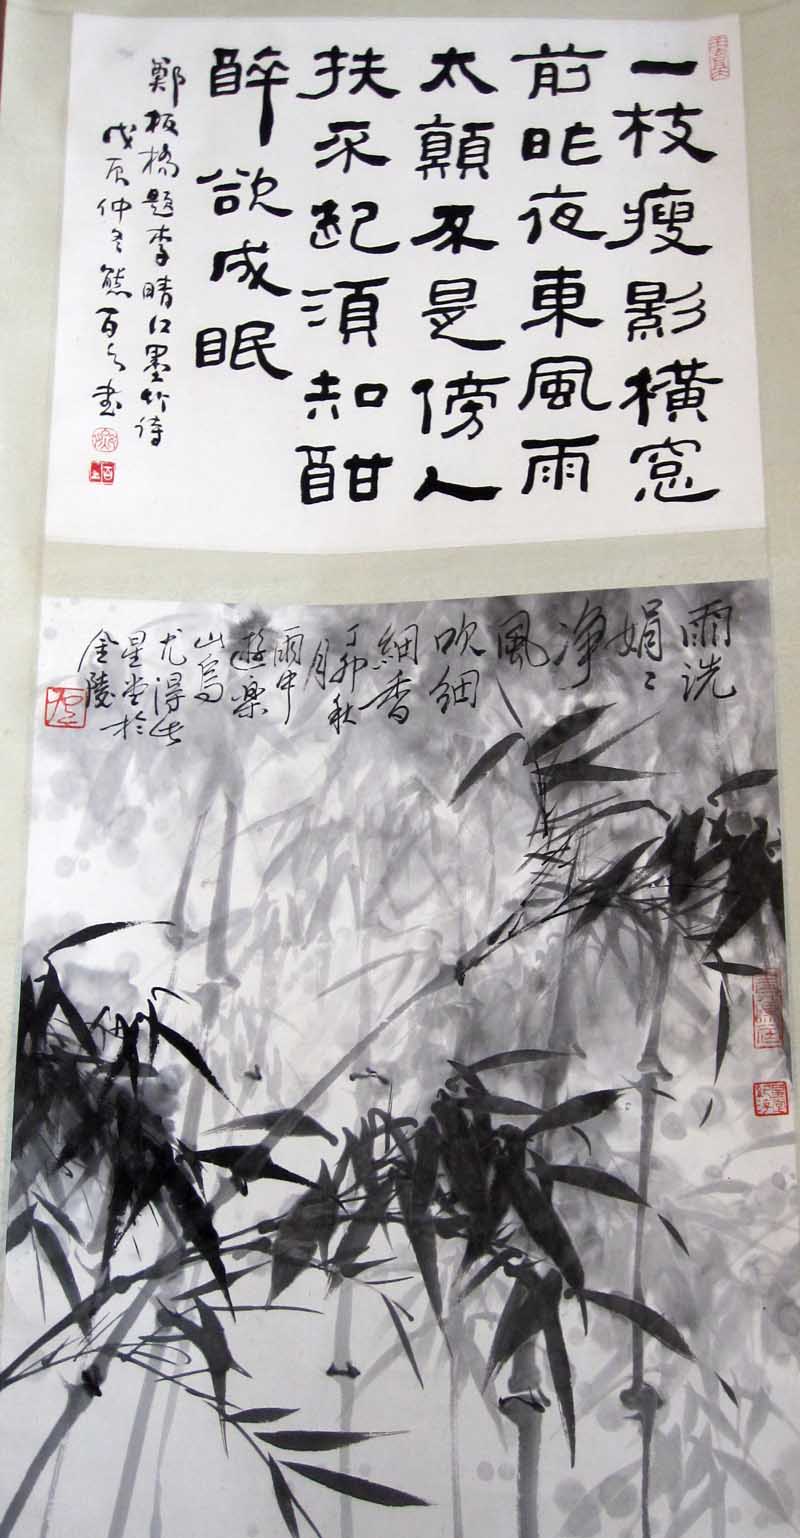 一枝瘦影橫窓
前昨夜東風雨
太顛不是傍人
扶不起須知酣
醉欲成眠
鄭板橋題李晴江墨竹詩
戊辰仲冬熊百之書
百之
雨洗
娟〻
淨
風
吹細
細香
丁卯秋
月
雨中
遊樂
山
尤得此
星堂於
金陵